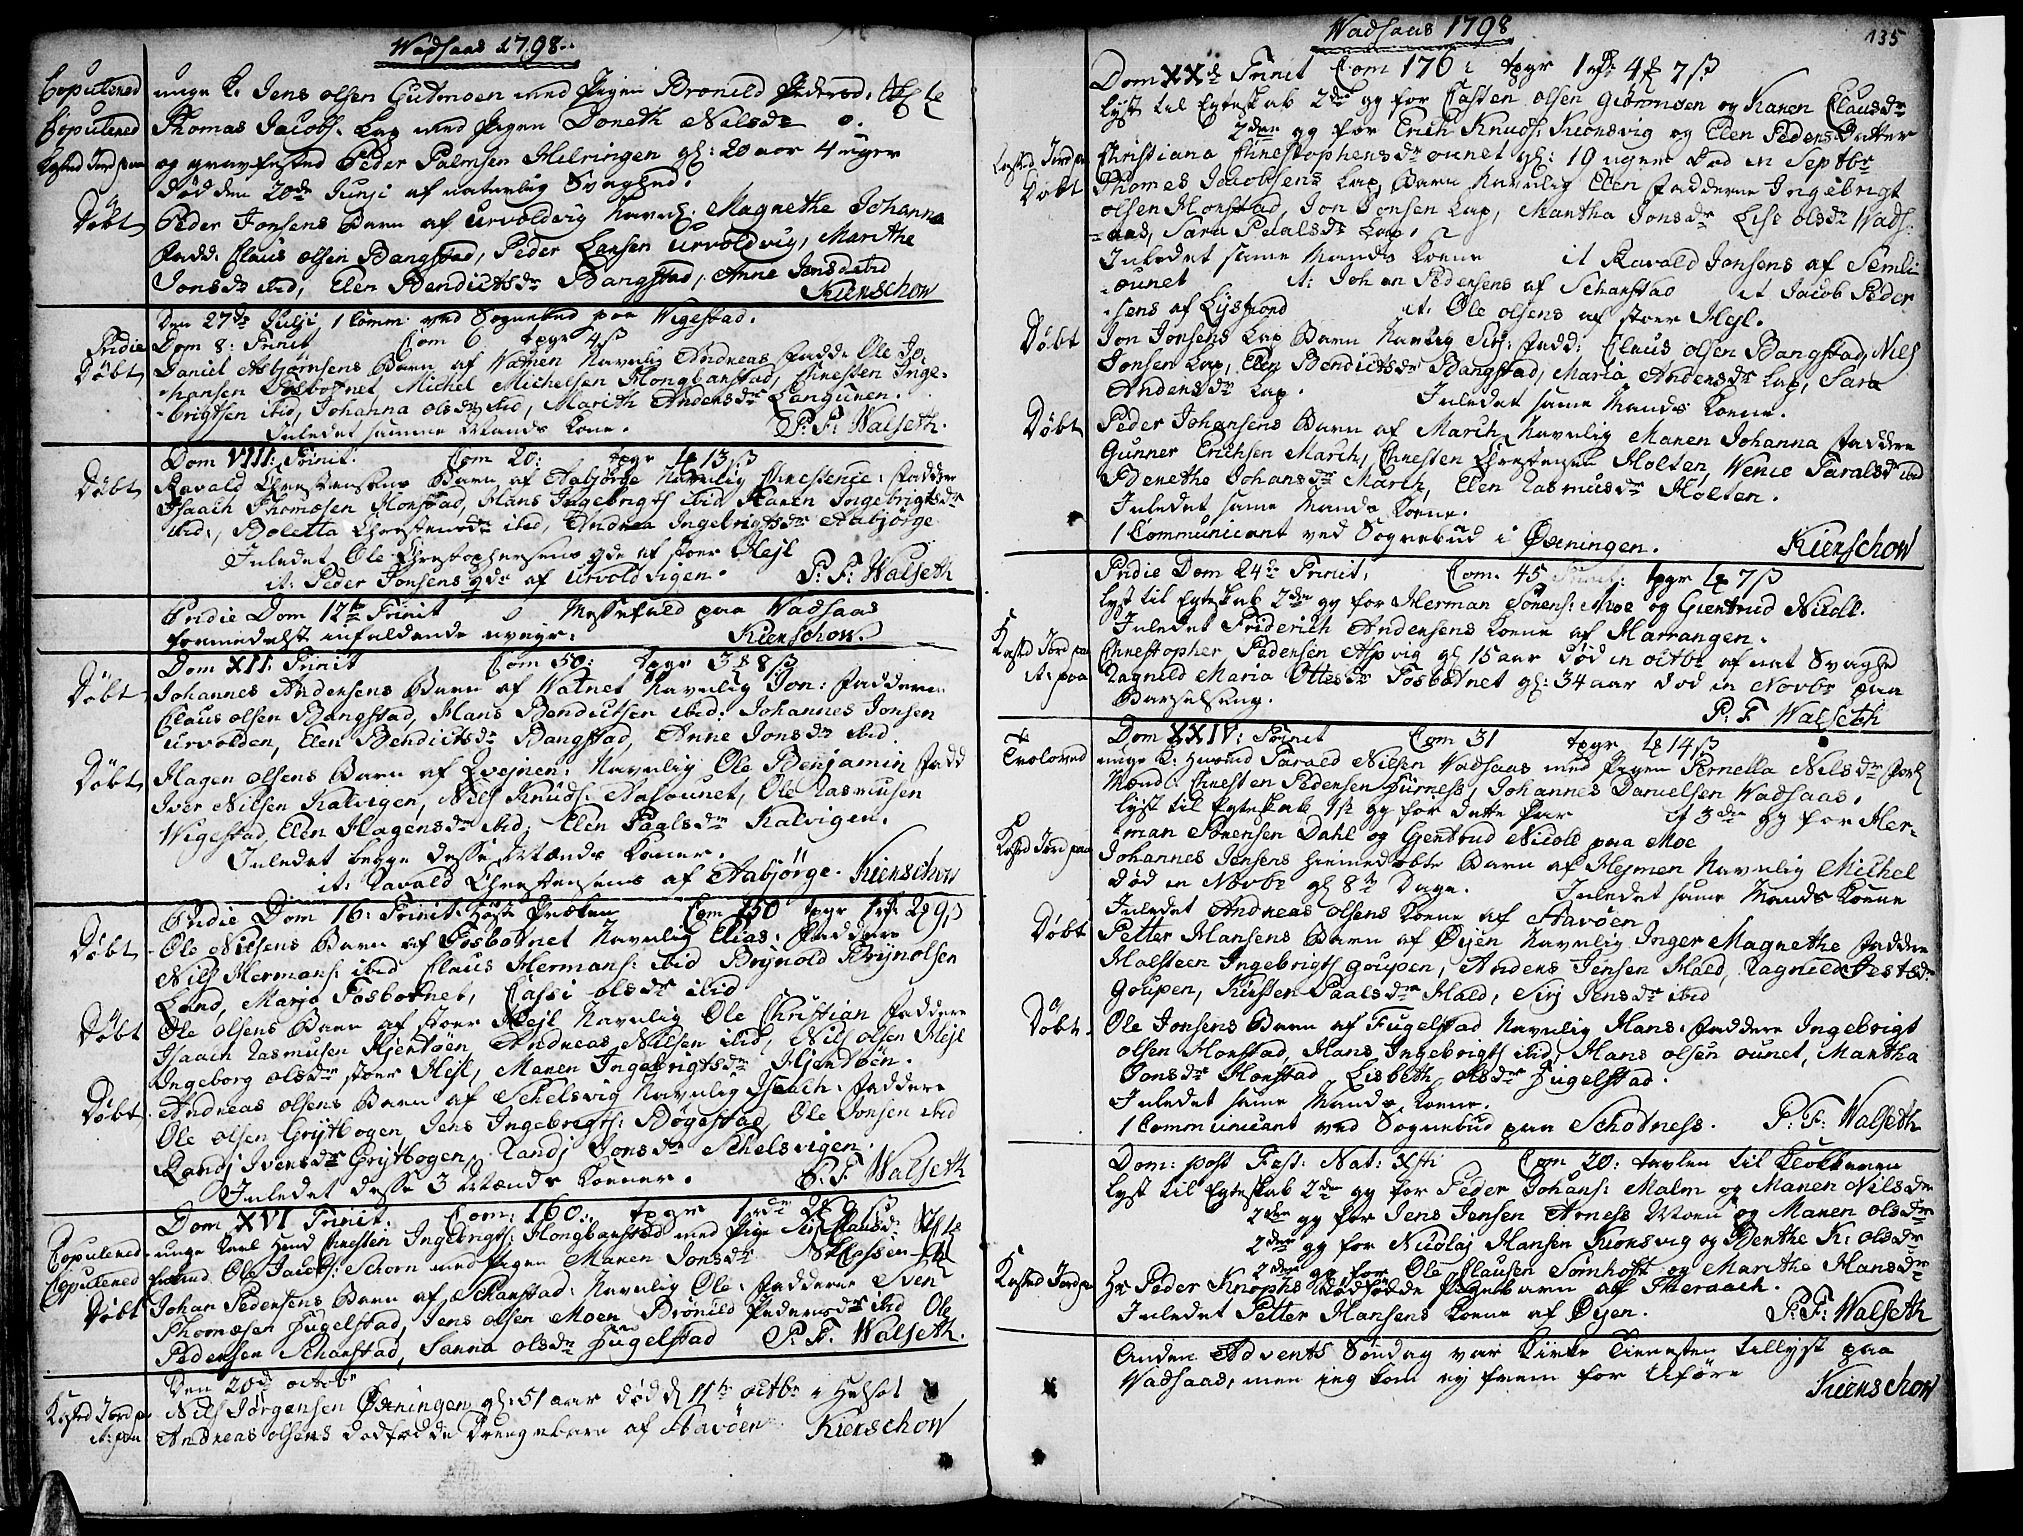 Wadsaas 1798.
Copulered unge K. Jens olsen Gutvigen med Pigen Bronild Pedersd.
Copulered Thomas Jacobs. Lap med Pigen Doneth Nilsdr
Kasted Jord paa og gravfested Peder Palmsen Helringen gl: 20 aar 4 uger
død den 20de Junji af naturlig Svaghed.
Døbt Peder Jonsens Barn af Urvoldvig Navnl: Magnethe Johanna
Fadd. Claus olsen Bangstad, Peder Larsen Urvoldvig, Marithe
Jonsdr ibid, Elen Bendictsdr Bangstad, Anne Jonsdr ibid
Kierschow
Den 27de Julji 1 Comm: ved Sognebud paa Wigestad.
Pridie Dom 8: Trinit Com 6 tpgr 4 ß
Døbt Daniel Asbjørnsens Barn af Vatnen Navnlig Andreas Fadd: Ole Jo-
hansen Fosbotnet, Michel Michelsen Kongbanstad, Christen Inge-
brigtsen ibid, Johanna olsdr ibid, Marith Andersdr Langunen.
Inledet samme Mands Kone. P: F: Walseth.
Dom VIII: Trinit. Com 20: tpgr 1 ꝑ 13 ß
Døbt Ravald Christensens Barn af Aabjørge Navnlig Christence: Faddere
Isaach Thomæsen Horstad, Hans Ingebrigts ibid Karen Ingebrigtsdr
ibid, Boletta Christensdr ibid, Andrea Ingebrigtsdr Aabjørge
Inledet Ole Christophersens qde af stoer Hejl
it: Peder Jonsens qde af Urvoldvigen. P: F: Walseth
Pridie Dom 12te Trinit Messefald paa Wadsaas
formedelst infaldende uveyr. Kierschow.
Dom XII: Trinit Com 50: tpgr 3 ꝑ 8 ß
Døbt Johannes Andersens Barn af Vatnet Navnlig Jon: Faddere
Claus olsen Bangstad, Hans Bendictsen ibid: Johannes Jonsen
Urvolden, Elen Bendictsdr Bangstad, Anne Jonsdr ibid.
Døbt Hagen olsens Barn af Qvejnen: Navnlig Ole Benjamin Fadd
Iver Nilsen Kalvigen, Nils Knuds: Aasounet, Ole Rasmusen
Wigestad, Elen Hagensdr ibid, Elen Paalsdr Kalvigen.
Inledet begge desse Mænds Koner.
it: Ravald Christensens af Aabjørge. Kierschow
Pridie Dom 16: Trinit: Høst Præken Com 150 tpgr 1 rdr 2 ꝑ 9 ß
Døbt Ole Nilsens Barn af Fosbotnet Navnlig Elias: Faddere
Nils Hermans: ibid Claus Hermans: ibid Brynold Brynolsen
Lund, Marja Fosbotnet, Cassi olsdr ibid
Døbt Ole olsens Barn af stoer Hejl Navnlig Ole Christian Faddere
Isaach Rasmusen Hjentøen Andreas Nilsen ibid, Nils olsen Hejl
Ingeborg olsdr stoer Hejl, Maren Ingebrigtsdr Hjentøen.
Døbt Andreas olsens Barn af Schelsvig Navnlig Isaach: Faddere
Ole olsen Grytbogen, Jens Ingebrigts: Bøgestad, Ole Jonsen ibid
Randj Iversdr Grytbogen, Randj Jonsdr Schelsvigen.
Inledet desse 3 Mænds Koener. P: F: Walseth
Dom XVI Trinit: Com: 160: tpgr 1 rdr
Copulered unge Karl Hend Christen Ingebrigts: Kongbanstad med Pige
Copulered Ole Jacobs: Schorn med Pigen Maren Jonsdr
Døbt Johan Pedersens Barn af Scharstad: Navnlig Ole: Faddere Sven
Thomæsen Fugelstad, Jens olsen Moen Brønild Pedersdr ibid Ole
Pedersen Scharstad, Sanna olsdr Fugelstad P: F: Walseth.
Den 20de octobr
Kasted Jord p Nils Jørgensen Øxningen gl: 51 aar død d 11te octbr
it: paa Andreas olsens dødfødde Drengebarn af Aavøen Kierschow
Wadsaas 1798
135
Dom XXde Trinit Com 176: tpgr 1 rdr 4 ꝑ 7 ß
lyst til Egteskab 2de gg for Casten olsen Giørnnsen og Karen Clausdr
2den gg for Erich Knuds: Kronsvig og Elen Peders Datter
Kasted Jord pa Christiana Christophersdr ounet gl: 19 uger død in Septbr
Døbt Thomes Jacobsens Lap Barn Navnlig Elen Faddere Ingebrigt
olsen Horstad, Jon Jonsen Lap, Martha Jonsdr Lise olsdr Wads-
aas, Sara Paalsdr Lap.
Inledet same Mands Koene it Ravald Jonsens af Semli-
ounet it: Johan Pedersens af Scharstad it Jacob Peder
sens af Lysfiord it: Ole olsens af stoer Hejl.
Døbt Jon Jonsens Lap Barn Navnlig Sirj: Fadd: Claus olsen Bangstad, Nils
Jonsen Lap, Elen Bendictsdr Bangstad, Maria Andersdr Lap, Sara
Andersdr Lap. Inledet same Mands Koene.
Døbt Peder Johansens Barn af March, Navnlig Maren Johanna Faddere
Gunner Erichsen March, Christen Christensen Holten, Wenie Taralsdr ibid
Benethe Johansdr March, Elen Rasmusdr Holten.
Inledet same Mands Koene.
1 Communicant ved Sognebud i Øxningen. Kierschow
Pridie Dom 24de Trinit. Com. 45 tpgr 1 ꝑ 7 ß
lyst til Egteskab 2de gg for Herman Sørens: Moe og Giertrud Nicoll.
Inledet Friderich Andersens Koene af Harrangen.
Kasted Jord paa Christopher Pedersen Aspvig gl 15 aar død in octbr af nat Svaghe
it: paa Ragnild Maria Ottesdr Fosbotnet gl: 34 aar død in Novbr paa
Barselseng.
P: F Walseth
Dom XXIV: Trinit Com 31 tpgr 1 ꝑ 14 ß
Troloved unge K: Husmd Tarald Nilsen Wadsaas med Pigen Pernella Nilsdr
Mænd: Christen Pedersen Furness, Johannes Danielsen Wadsaas.
lyst til Egteskab 1ste gg for dette Par it 3die gg for Her-
man Sørensen Dahl og Giertrud Nicole paa Moe
Kasted Jord paa Johannes Jensens hiemedøbte Barn af Hejmen Navnlig Michel
død in Novbr gl 8te Dage. Inledet same Mands Koene
Inledet Andreas olsens Koene af Aavøen
Døbt Petter Hansens Barn af Øyen Navnlig Inger Magnethe Faddere
Holsteen Ingebrigts Goupen, Anders Jensen Hald, Ragnild
Goupen, Kiersten Paalsdr Hald, Sirj Jensdr ibid
Døbt Ole Jonsens Barn af Fugelstad Navnlig Hans: Faddere Ingebrigt
olsen Horstad, Hans Ingebrigts ibid, Hans olsen ounet, Martha
Jonsdr Horstad Lisbeth olsdr Fugelstad.
Inledet same Mands Koene.
1 Communicant ved Sognebud paa Schotness. P: F: Walseth
Dom: post Fest: Nat: Xsti Com 20: tavlen til Klokkeren
lyst til Egteskab 2de gg for Peder Johans: Malm og Maren Nilsdr
2den gg for Jens Jensen Arness Moen og Maren olsdr
2den gg for Nicolaj Hansen Kronsvig og Berthe K: olsdr
2den gg for Ole Clausen Sørnhoft og Marithe Hansdr
Kasted Jord pa Hr Peder Knophs dødfødde Pigebarn af Theraach.
Inledet Petter Hansens Koene af Øyen. P: F: Walseth
Anden Advents Søndag var Kirke Tienesten tillyst paa
Wadsaas, men ieg kom ej frem for Uføre Kierschow